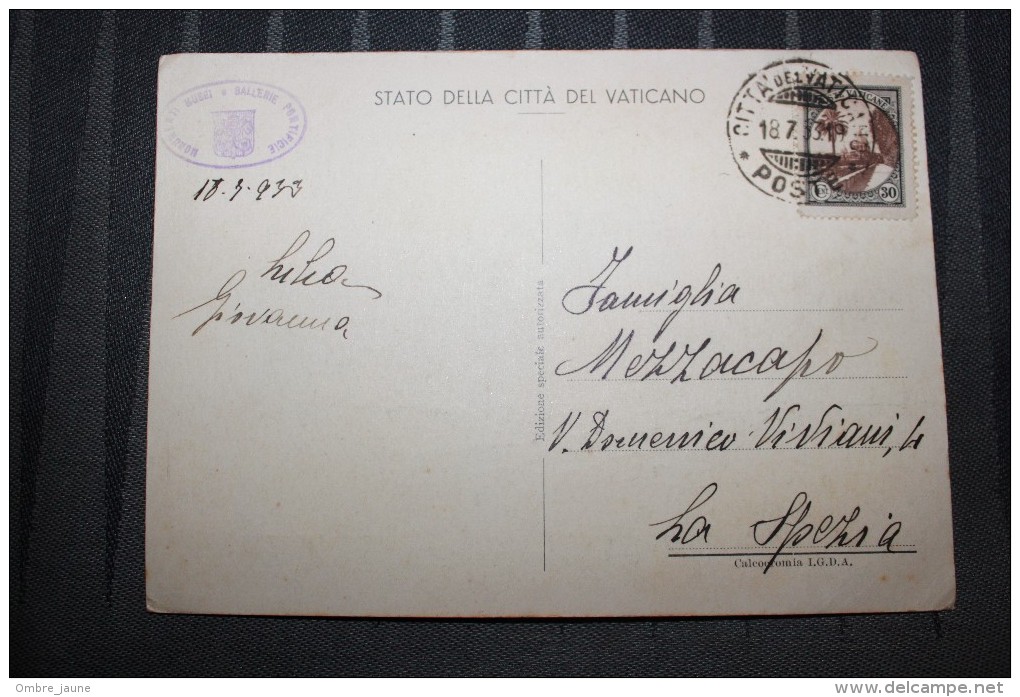 MONUMENTI MUSEI * GALLERIE PONTIFICIE
STATO DELLA CITTÀ DEL VATICANO
CITTÀ DEL VATICANO
18.7.33.19
* POSTE
VATICANE
30
18.7.933
Giovanna
Edizione speciale autorizzata
Famiglia
Mezzacapo
V. Domenico Viviani, 4
La Spezia
Calcocromia I.G.D.A.
Ombre_jaune
www.delcampe.net